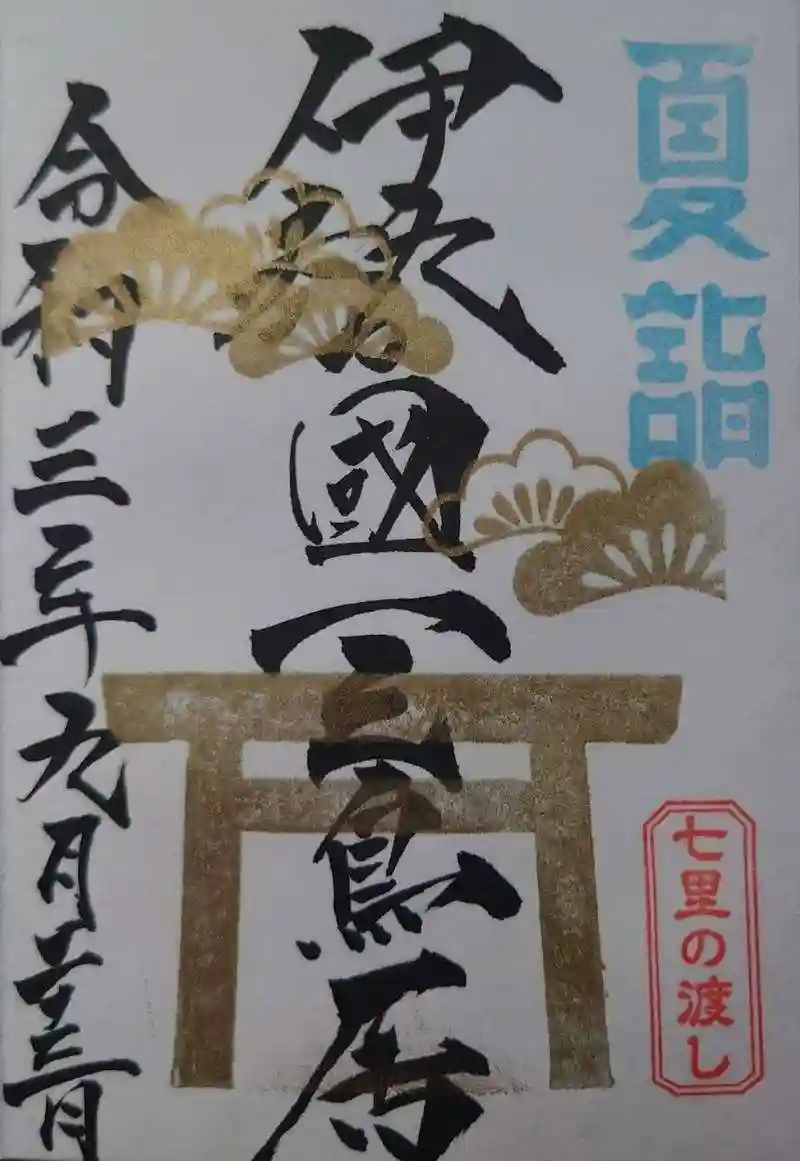 夏詣
七里の渡し
伊勢國一之鳥居
令和三年九月二十三日